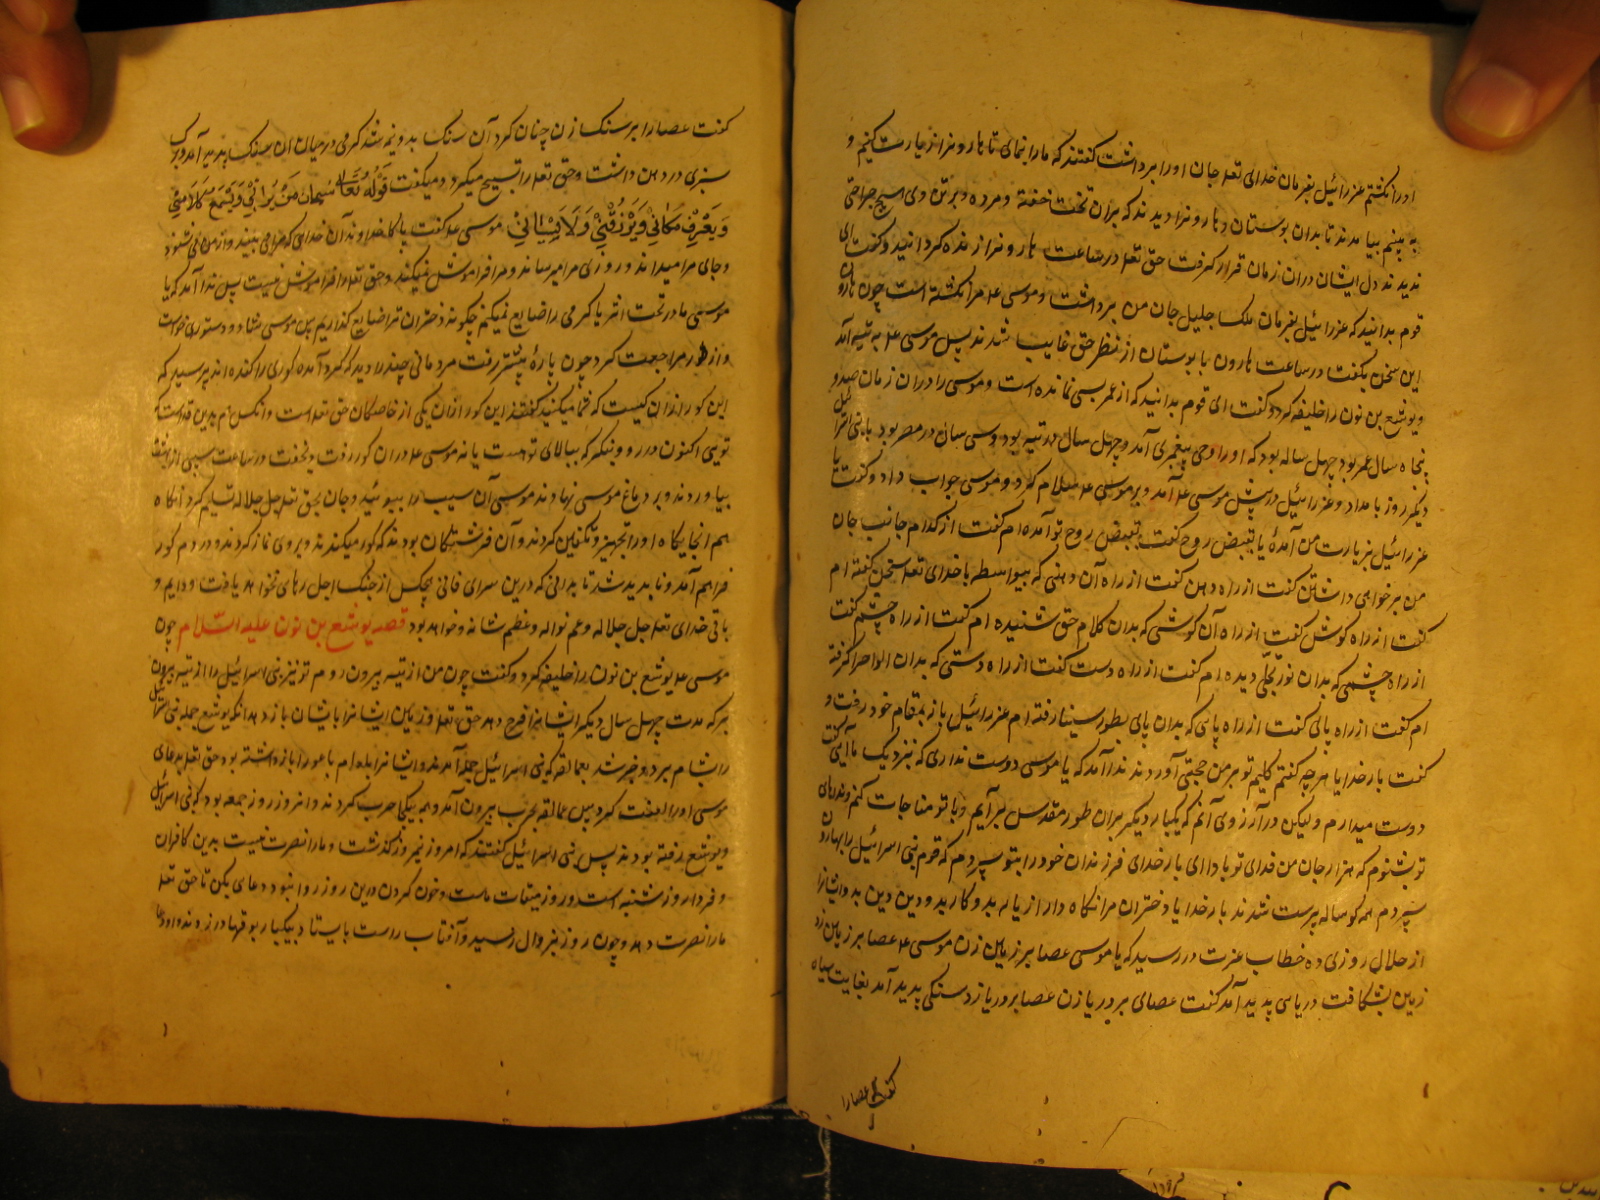 اورا نکشتم عزرائیل بفرمان خدای تعه جان اورا برداشت گفتند که مارا بنمای تا هارونرا زیارت کنیم و
به بینم بیامدند تا بدان بوستان و هارونرا دیدند که بران تخت خفته و مرده و برتن وی هیچ جراحتی
ندیدند دل ایشان دران زمان قرار گرفت حق تعه در ساعت هارونرا زنده گردانید و گفت ای
قوم بدانید که عزرائیل بفرمان ملک جلیل جان من برداشت و موسی عم مرا نکشته است چون هارون
این سخن بگفت در ساعت هارون با بوستان از نظر خلق غایب شدند پس موسی عم به تیه آمد
و یوشع بن نون را خلیفه کرد و گفت ای قوم بدانید که از عمر بسی نمانده است و موسی را دران زمان صد و
پنجاه سال عمر بود چهل ساله بود که اورا وحی پیغمبری آمد و چهل سال در تیه بود و سی سال در مصر بود با بنی اسرائیل
دیگر روز بامداد عزرائیل در پیش موسی عم آمد و بر موسی عم سلام کرد و موسی جواب داد و گفت یا
عزرائیل بزیارت من آمدهٔ یا بقبض روح گفت بقبض روح تو آمده ام گفت از کدام جانب جان
من برخواهی داشتن گفت از راه دهن گفت از راه آن دهنی که بیواسطه با خدای تعه سخن گفته ام
گفت از راه گوش گفت از راه آن گوشی که بدان کلام حق شنیده ام گفت از راه چشم گفت
از راه چشمی که بدان نور تجلّی دیده ام گفت از راه دست گفت از راه دستی که بدان الواح گرفته
ام گفت از راه پای گفت از راه پای که بدان پای بطور سینا رفته ام عزرائیل باز بمقام خود رفت و
گفت بار خدایا هرچه گفتم کلیم تو بر من حجتی آورد ندا آمد که یا موسی دوست نداری که نزدیک ما آیی گفت
دوست میدارم ولیکن در آرزوی آنم که یکبار دیگر بران طور مقدس برآیم و با تو مناجات کنم و ندای
تو بشنوم که هزار جان من فدای تو باد ای بار خدای فرزندان خود را بتو سپردم که قوم بنی اسرائیل را بهارون
سپردم همه گوساله پرست شدند بار خدایا دختران مرا نگاه دار از یار بد و کار بد و دین بد و ایشانرا
از حلال روزی ده خطاب عزت در رسید که یا موسی عصا بر زمین زن موسی عم عصا بر زمین زد
زمین بشکافت دریاسی پدید آمد گفت عصای بر دریا زن عصا بر دریا زد سنگی پدید آمد بغایت سیاه
گفت عصارا
گفت عصارا بر سنگ زن چنان کرد آن سنگ بدونیم شد کرمی در میان ان سنگ پدید آمد و برک
سبزی در دهن داشت و حق تعه را تسبیح میکرد و میگفت قَوْلُهُ تَعَالٰی سُبحان مَنْ یَرَانِی وَیَسْمَعُ کَلَامِی
وَیَعْرِفُ مَکَانِی وَیَرْزُقُنِی وَلَا یَنْسَانِی موسی عم گفت پاکا خداوندا آن خدای که مرا می بیند و از من می شنود
و جای مرا میداند و روزی مرا میرساند و مرا فراموش نمیکند و حق تعه را فراموشی نیست پس ندا آمد که یا
موسی ما در تحت الثری کرمی را ضایع نمیکنم چگونه دختران ترا ضایع گذاریم پس موسی شاد و دستوری خواست
و از طور مراجعت کرد چون پارهٔ پیشتر رفت مردمانی چند را دید که گرد آمده گوری را کنده اند پرسید که
این گور از ان کیست که شما میکنید گفتند این گور از ان یکی از خاصگان حق تعه است و آنکس هم بدین قد است که
تویی اکنون در رو و بنگر که ببالای تو هست یا نه موسی عم دران گور رفت و بخفت در ساعت سیبی از بهشت
بیاوردند و بر دماغ موسی نهادند موسی آن سیب را ببوئید و جان بحق تعه جل جلاله تسلیم کرد آنگاه
هم انجایگاه اورا تجهیز و تکفین کردند و آن فرشتگان بودند که گور میکندند و بروی نماز کردند و در دم گور
فراهم آمد و ناپدید شد تا بدانی که درین سرای فانی هیچکس از چنگ اجل رهای نخواهد یافت و دایم و
باقی خدای تعه جل جلاله و عم نواله و عظم شانه و خواهد بود قصه یوشع بن نون علیه السّلام چون
موسی عم یوشع بن نون را خلیفه کرد و گفت چون من از تیه بیرون روم تو نیز بنی اسرائیل را از تیه بیرون
بر که مدت چهل سال دیگر ایشانرا فرج دهد حق تعه و زمین ایشانرا بایشان باز دهد انگه یوشع جمله بنی اسرائیل
را بشام برد و خبر شد بعمالقه که بنی اسرائیل جمله آمدند و ایشانرا بلعام باعورا بازداشته بود حق تعه بدعای
موسی اورا لعنت کرد پس عمالقه بحرب بیرون آمد و همه بیکی حرب کردند و انروز روز جمعه بود که بنی اسرائیل
و یوشع رفته بودند پس بنی اسرائیل گفتند که امروز نیم روز گذشت و مارا نصرت نیست بدین کافران
و فردا روز شنبه است و روز میقات ماست و خون کردن درین روز روا نبود دعای بکن تا حق تعه
مارا نصرت دهد و چون روز بزوال رسید و آفتاب راست بایستاد بیکبار بوقها در زدند و اورا